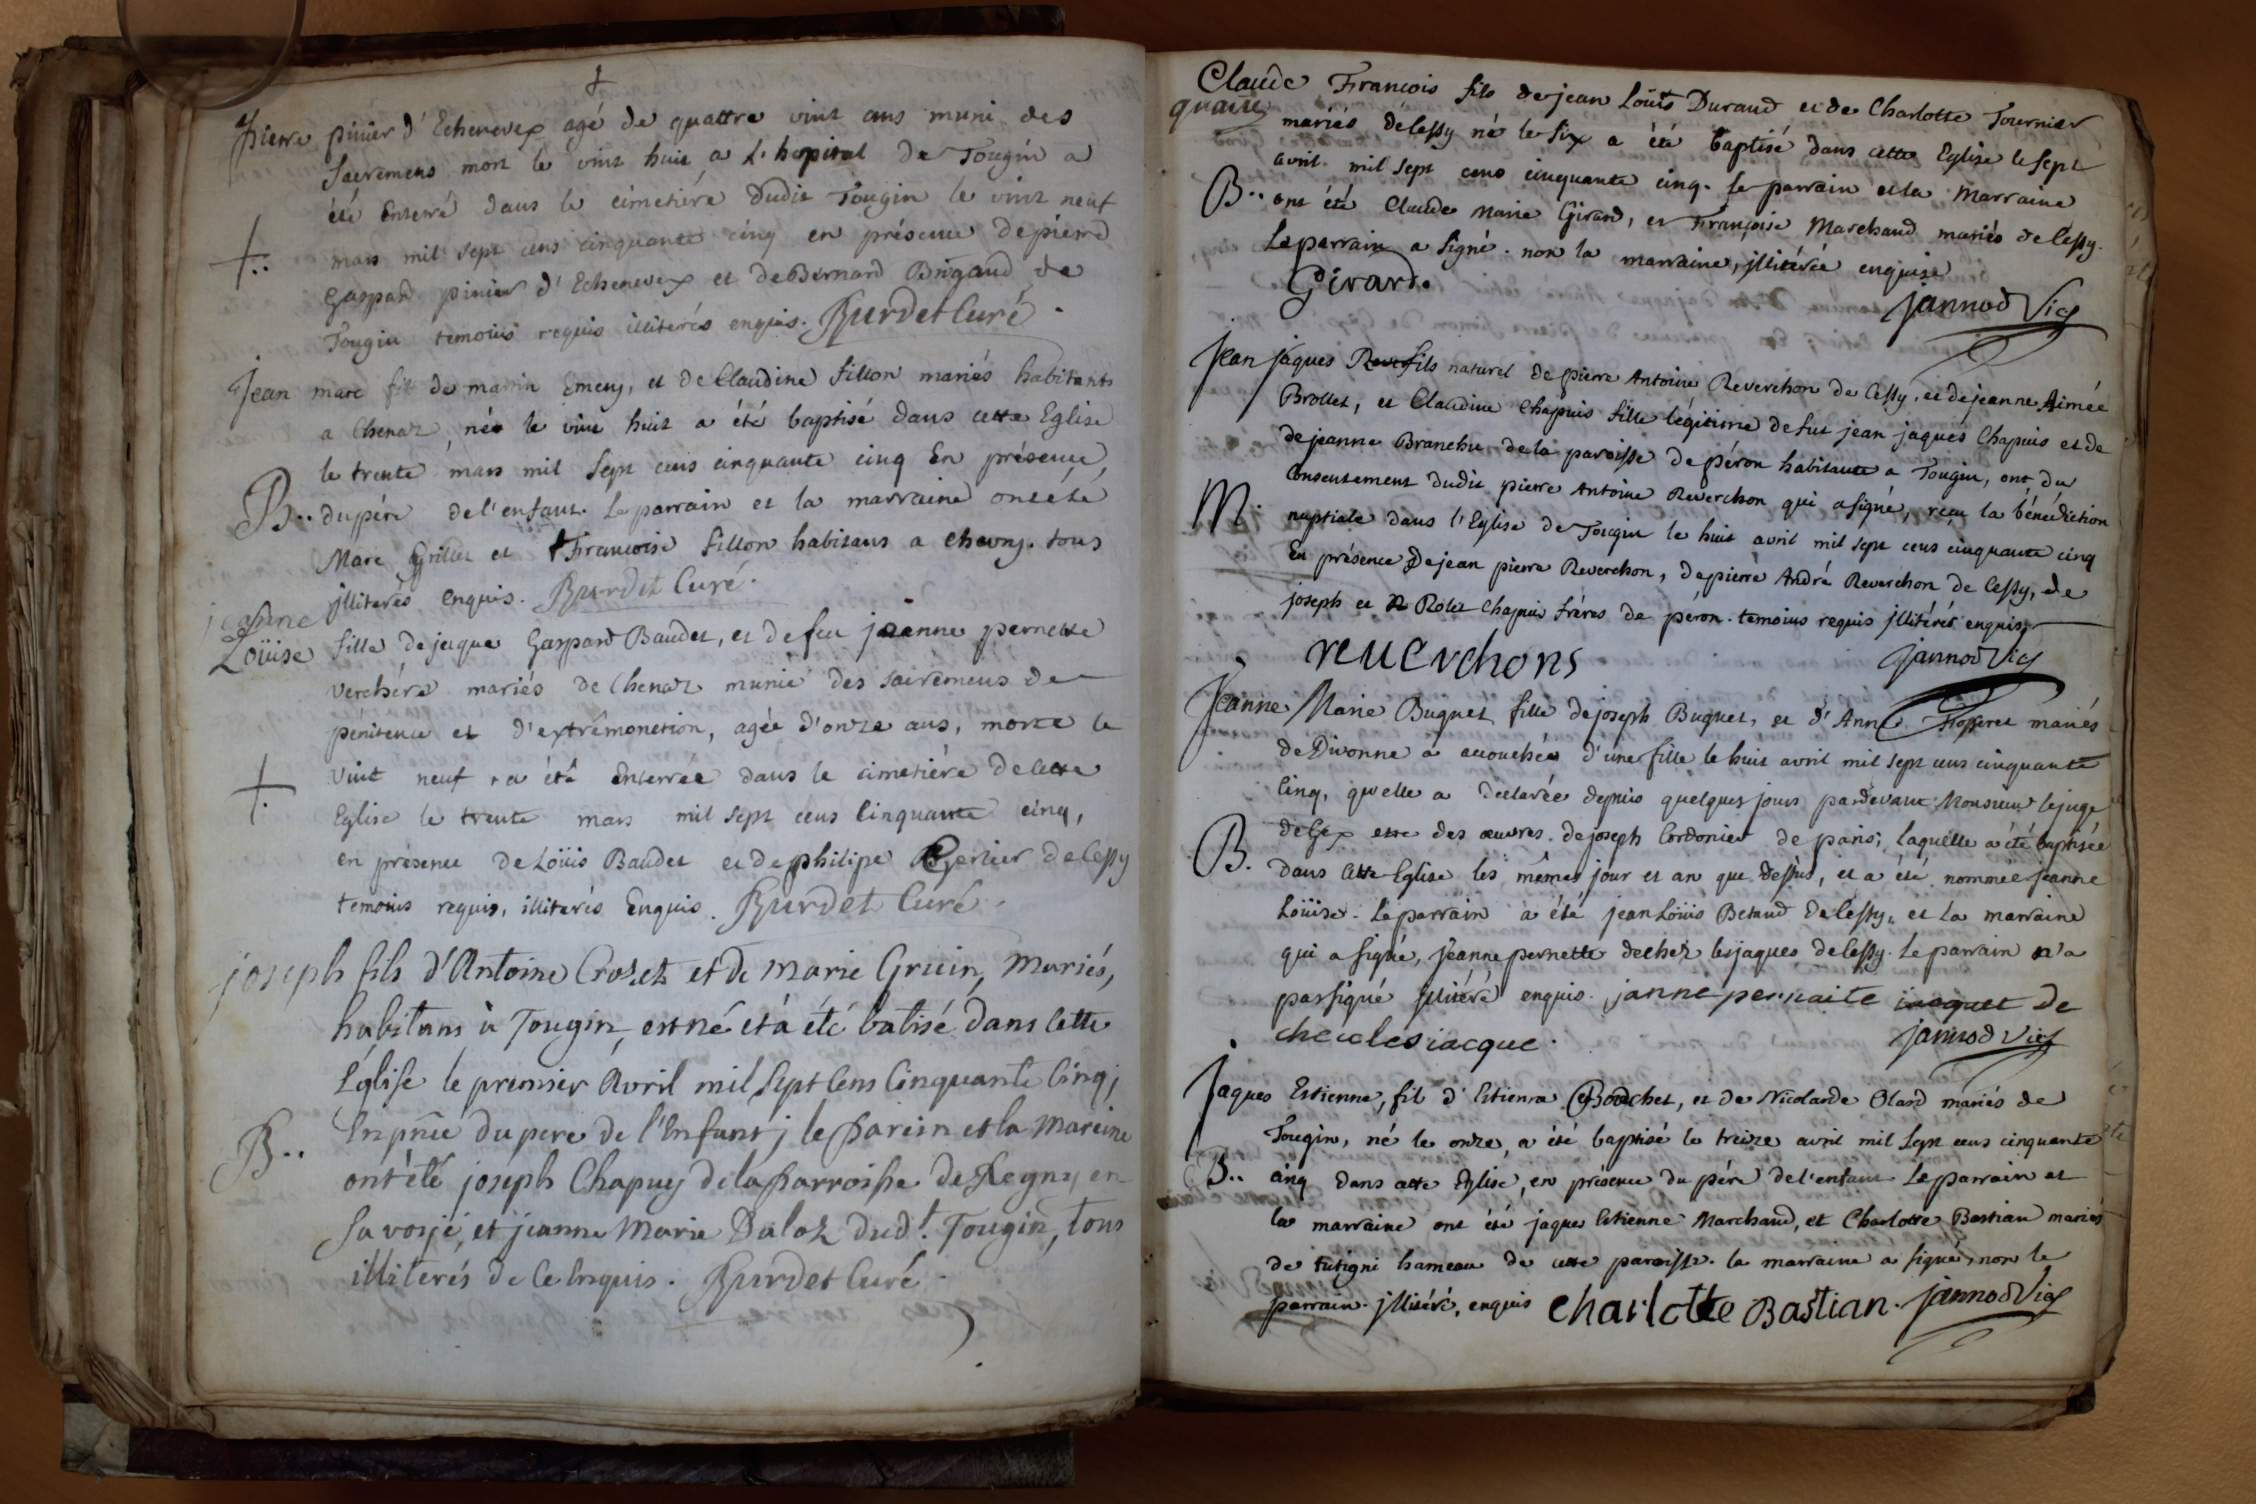 Pierre pinier d'Echenevex agé de quattre vint ans muni des
sacremens mort le vint huit a L'hopital de Tougin a
été Enterré dans le cimetiére dudit Tougin le vint neuf
mars mil sept cens cinquante cinq en présence de pierre
Gaspard pinier d'Echenevex et de Bernard Brigand de
Tougin temoins requis illiterés enquis. Burdet Curé
Jean marc fils de martin Emery, et de Claudine fillon mariés habitants
a Chenaz, né le vint huit a été baptisé dans cette Eglise
le trente mars mil sept cens cinquante cinq En présence,
B.. du pére de l'enfant. Le parrain et la marraine ont été
Marc Grillet et francoise fillon habitans a chevry. tous
jlliterés enquis. Burdet Curé.
jeanne
Loüise fille de jaque Gaspard Baudet, et de feu jeanne pernette
verchére mariés de Chenaz munie des sacremens de
pénitence et d'extrêmonction, agée d'onze ans, morte le
vint neuf a été Enterrée dans le cimetiére de cette
Eglise le trente mars mil sept cens Cinquante cinq,
en présence de Loüis Baudet et de philipe Gerlier de Cessy
temoins requis, illiterés Enquis. Burdet Curé.
joseph fils d'Antoine Crozet et de marie Gruin, Mariés,
habitans à Tougin, est né et à été batisé dans Cette
Eglise le premier Avril mil sept Cens Cinquante Cinq;
B.. En pñce du pere de l'Enfant; le parein et la Mareine
ont été joseph Chapuy de la parroisse de Regny en
Savoye, et jeanne Marie Daloz dud.t Tougin, tous
illiterés de Ce Enquis. Burdet Curé.
Claude François fils de jean Loüis Durand et de Charlotte Tournier
mariés de Cessy né le six a été baptisé dans cette Eglise le sept
avril mil sept cens cinquante cinq. le parrain et la Marraine
B.. ont été Claude Marie Girard, et Françoise Marchand mariés de Cessy.
Le parrain a signé. non la marraine, jlliterée enquise
Girard. jannod Vic
Jean jâques Rever fils naturel de pierre Antoine Reverchon de Cessy, et de jeanne Aimée
Brollet, et Claudine Chapuis fille légitime de fut jean jaques Chapuis et de
de jeanne Branchu de la paroisse de péron habitante a Tougin, ont du
Consentement dudit pierre Antoine Reverchon qui a signé, reçu la bénédiction
M. nuptiale dans l'Eglise de Tougin le huit avril mil sept cens cinquante cinq
En présence de jean pierre Reverchon, de pierre André Reverchon de Cessy, de
joseph et Rolet Chapuis fréres de péron. temoins requis jlliterés enquis.
reuerchons jannod Vic
Jeanne Marie Buguet fille de joseph Buguet, et d'Anne mariés
de Divonne a accouchée d'une fille le huit avril mil sept cens cinquante
Cinq, qu'elle a déclarée depuis quelques jours pardevant Monsieur le juge
de Gex etre des œuvres de joseph Cordonier de paris; laquelle a été baptisée
B. dans Cette Eglise les mêmes jour et an que dessus, et a été nommée jeanne
Loüise. Le parrain a été jean Loüis Betaud de Cessy, et la marraine
qui a signé, jeanne pernette de chez les jaques de Cessy. Le parrain n'a
pas signé jlliteré enquis. janne pernaite iaquet de
cheu les iacque. jannod Vic
Jaques Estienne, fil d'Estienne Bouchet, et de Nicolarde Olard mariés de
Tougin, né le onze, a été baptisé le treize avril mil sept cens cinquante
B.. cinq dans cette Eglise, en présence du pére de l'enfant. Le parrain et
la marraine ont été jaques Estienne Marchand, et Charlotte Bastian mariés
de tutigni hameau de cette paroisse. la marraine a signé, non le
parrain jlliteré, enquis charlotte Bastian. jannod Vic